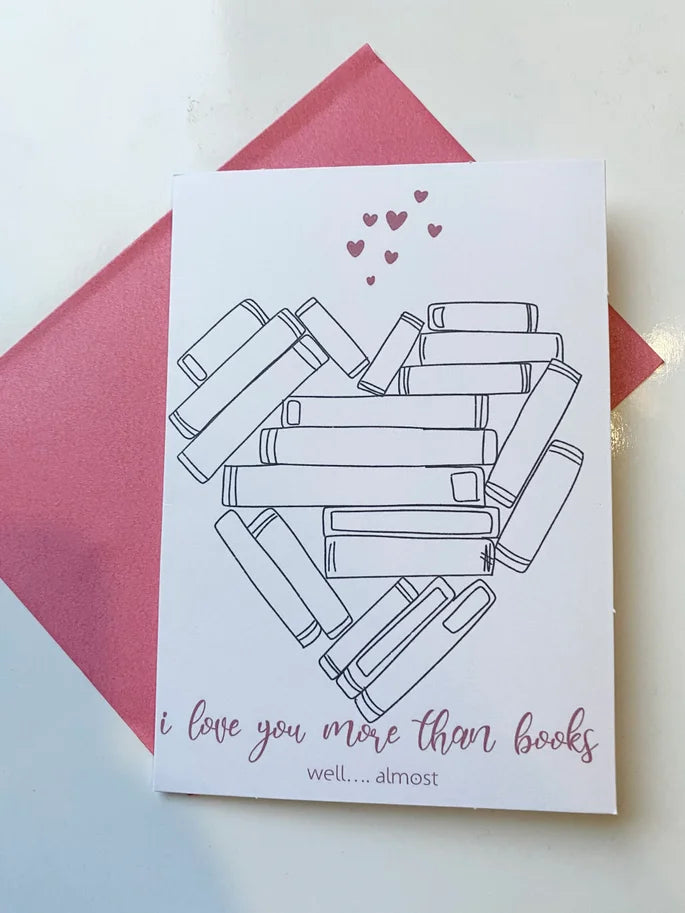 i love you more than books
well.... almost